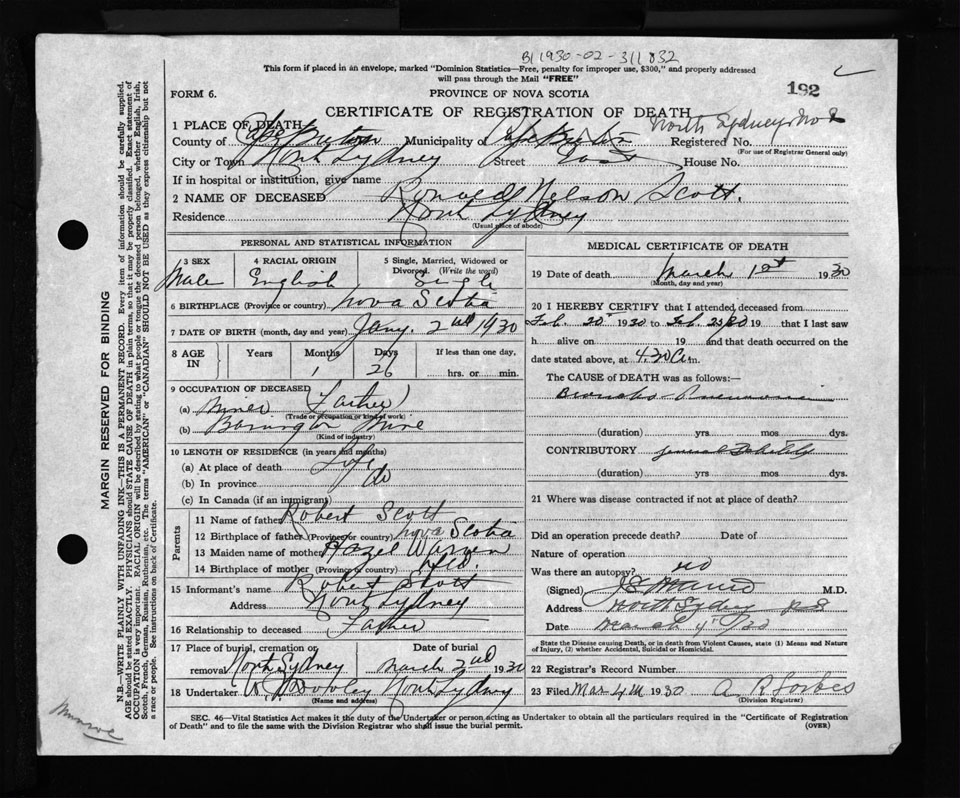 B1 1930-02-311832
This form if placed in an envelope, marked "Dominion Statistics—Free, penalty for improper use, $300," and properly addressed
will pass through the Mail "FREE"
192
FORM 6.
PROVINCE OF NOVA SCOTIA
CERTIFICATE OF REGISTRATION OF DEATH
North Sydney
1 PLACE OF DEATH
County of Cape Breton Municipality of Cape Breton Registered No.
(For use of Registrar General only)
City or Town North Sydney Street House No.
If in hospital or institution, give name
2 NAME OF DECEASED Ronald Nelson Scott.
Residence North Sydney
(Usual place of abode)
PERSONAL AND STATISTICAL INFORMATION
3 SEX
Male
4 RACIAL ORIGIN
English
5 Single, Married, Widowed or
Divorced. (Write the word)
Single
6 BIRTHPLACE (Province or country) Nova Scotia
7 DATE OF BIRTH (month, day and year) Jany. 2nd 1930
8 AGE
IN
Years
Months
1
Days
26
If less than one day,
hrs. or min.
9 OCCUPATION OF DECEASED
(a) Miner (Father)
(Trade or occupation or kind of work)
(b) Mine
(Kind of industry)
10 LENGTH OF RESIDENCE (in years and months)
(a) At place of death Life
(b) In province do
(c) In Canada (if an immigrant)
Parents
11 Name of father Robert Scott
12 Birthplace of father (Province or country) Nova Scotia
13 Maiden name of mother Hazel
14 Birthplace of mother (Province or country) Nfld.
15 Informant's name Robert Scott
Address North Sydney
16 Relationship to deceased Father
17 Place of burial, cremation or
removal North Sydney
Date of burial
March 2nd 1930
18 Undertaker Dooley North Sydney
(Name and address)
MEDICAL CERTIFICATE OF DEATH
19 Date of death March 1st 1930
(Month, day and year)
20 I HEREBY CERTIFY that I attended deceased from
Feb. 20 1930 to Feb. 19 that I last saw
h alive on 19 and that death occurred on the
date stated above, at 4.30 a m.
The CAUSE of DEATH was as follows:—
Broncho-Pneumonia
(duration) yrs mos dys.
CONTRIBUTORY General Debility
(duration) yrs mos dys.
21 Where was disease contracted if not at place of death?
Did an operation precede death? Date of
Nature of operation
Was there an autopsy? no
(Signed) M.D.
Address North Sydney N S
Date March 4th /30
State the Disease causing Death, or in death from Violent Causes, state (1) Means and Nature
of Injury, (2) whether Accidental, Suicidal or Homicidal.
22 Registrar's Record Number
23 Filed Mar 4th 1930 A R Forbes
(Division Registrar)
SEC. 46—Vital Statistics Act makes it the duty of the Undertaker or person acting as Undertaker to obtain all the particulars required in the "Certificate of Registration
of Death" and to file the same with the Division Registrar who shall issue the burial permit.
(OVER)
MARGIN RESERVED FOR BINDING
N.B.—WRITE PLAINLY WITH UNFADING INK—THIS IS A PERMANENT RECORD. Every item of information should be carefully supplied.
AGE should be stated EXACTLY. PHYSICIANS should STATE CAUSE OF DEATH in plain terms, so that it may be properly classified. Exact statement of
OCCUPATION is very important. RACIAL ORIGIN will be described by stating to what people or tongue the deceased person belonged, whether English, Irish,
Scotch, French, German, Russian, Ruthenian, etc. The terms "AMERICAN" or "CANADIAN" SHOULD NOT BE USED as they express citizenship but not
a race or people. See instructions on back of Certificate.